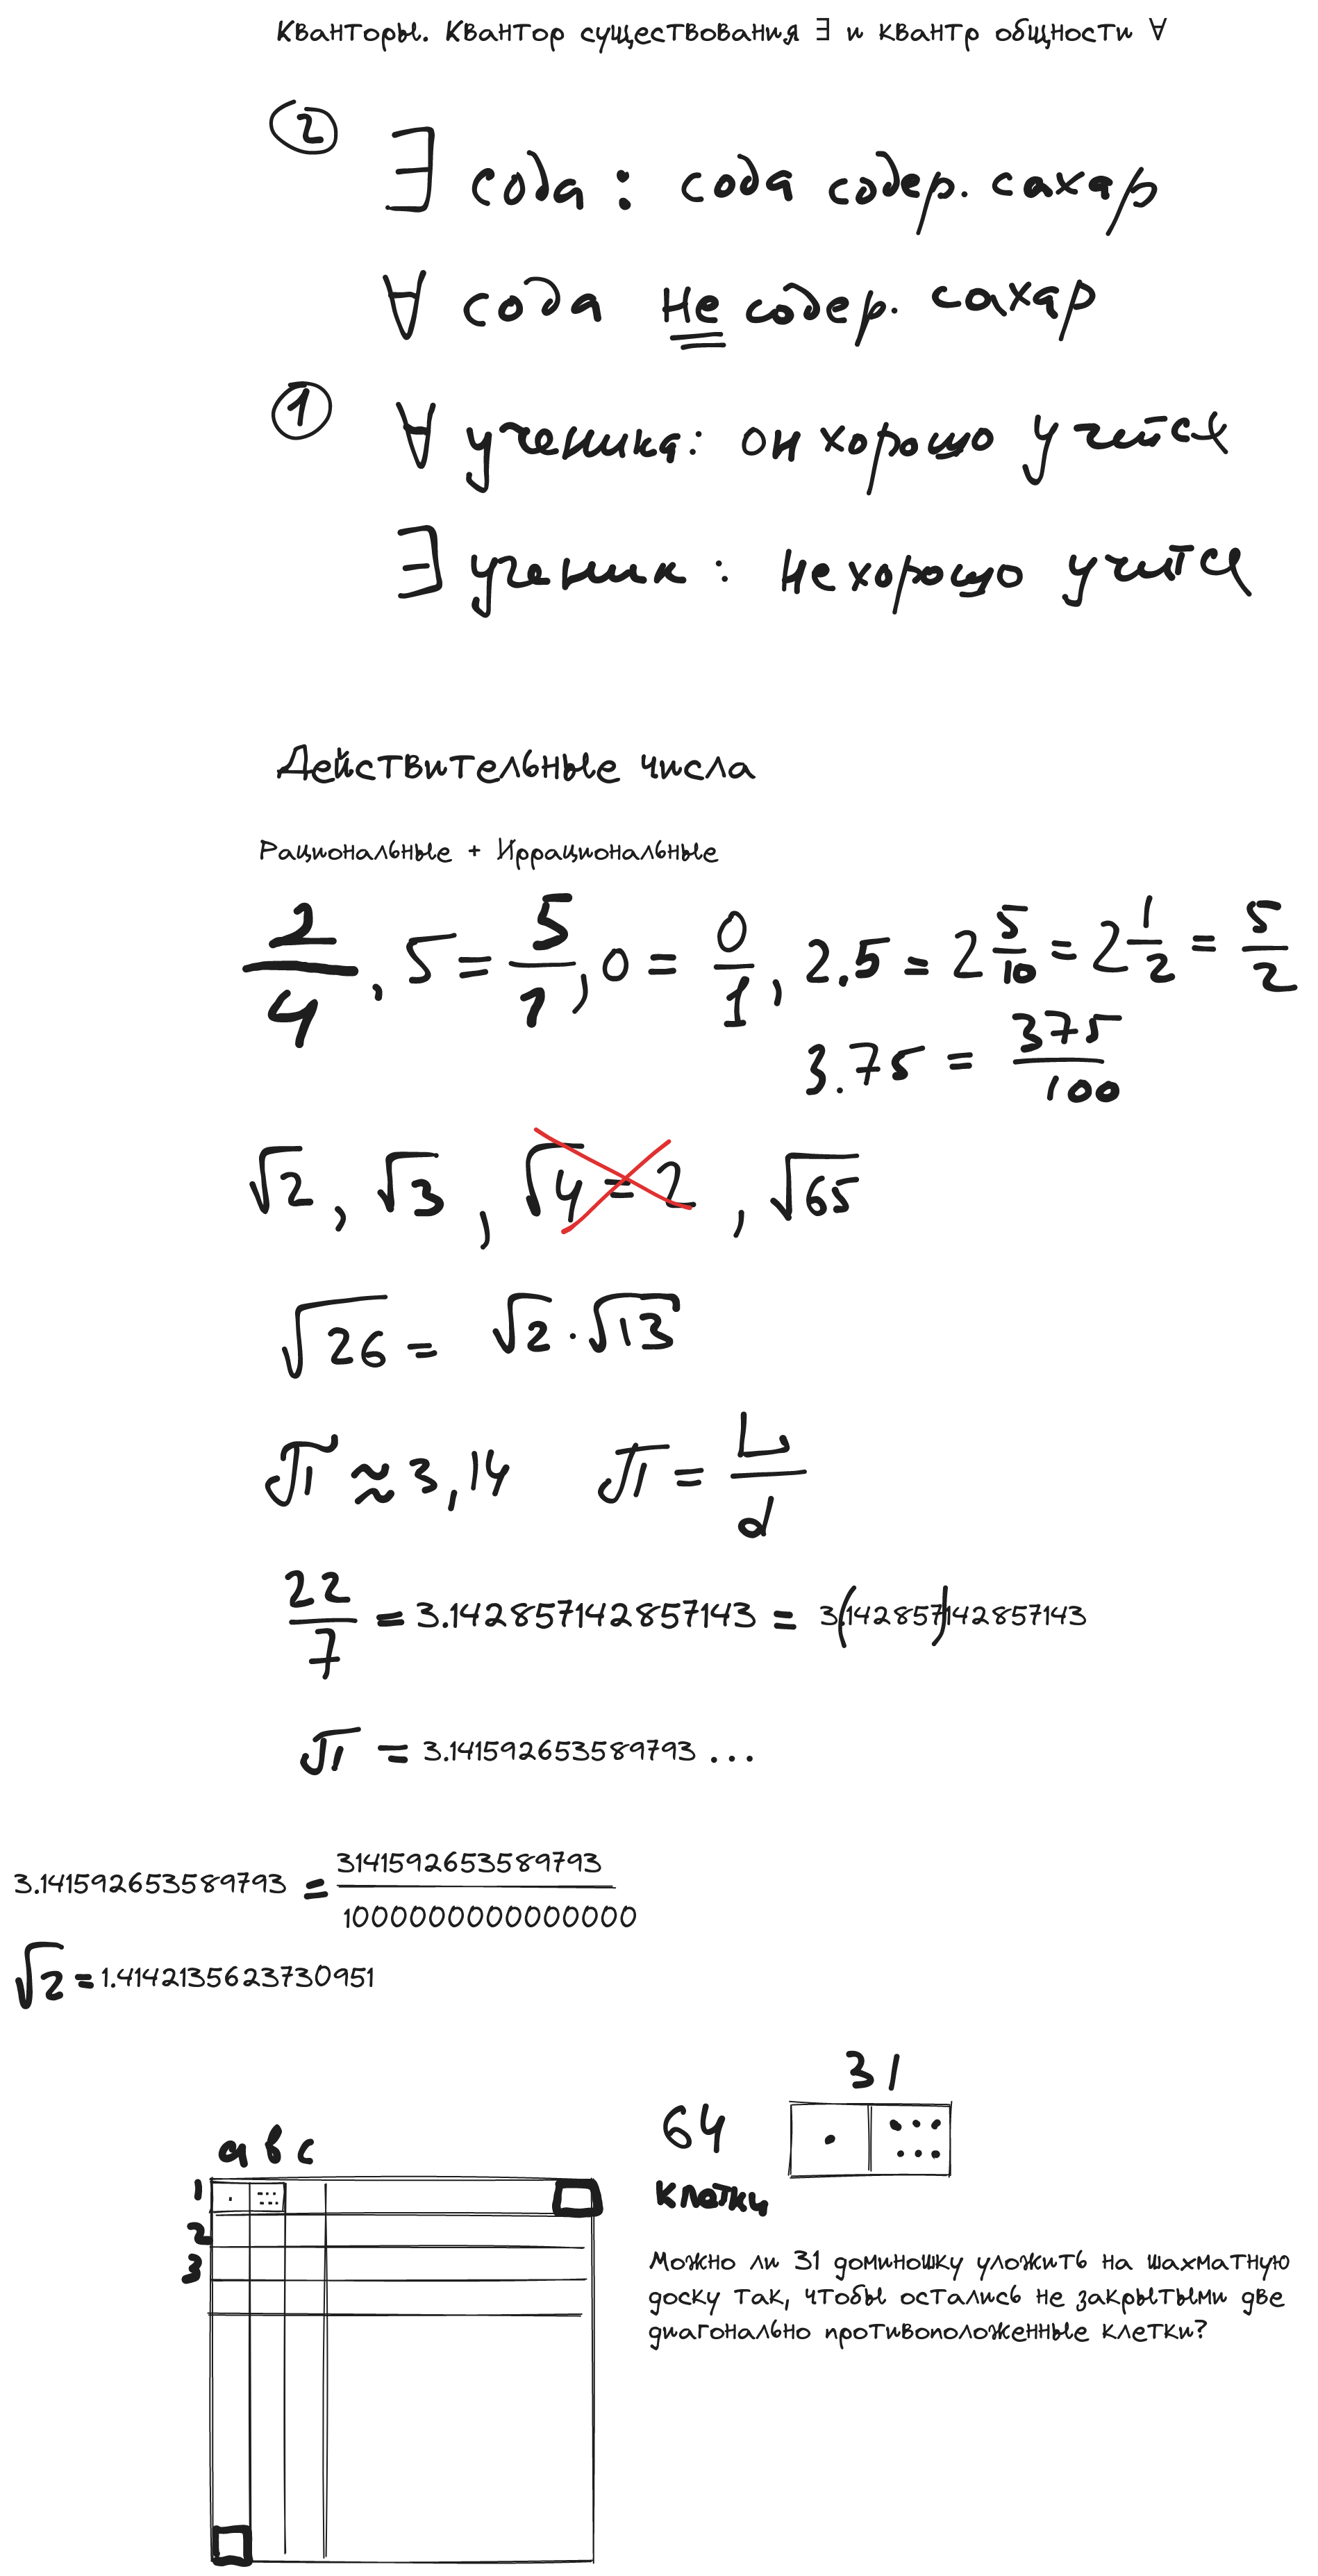 Кванторы. Квантор существования ∃ и квантр общности ∀
② ∃ сода : сода содер. сахар
∀ сода не содер. сахар
① ∀ ученика: он хорошо учится
∃ ученик : не хорошо учится
Действительные числа
Рациональные + Иррациональные
2/4, 5 = 5/1, 0 = 0/1, 2.5 = 2 5/10 = 2 1/2 = 5/2
3.75 = 375/100
√2, √3, √4 = 2, √65
√26 = √2 · √13
π ≈ 3,14 π = L/d
22/7 = 3.142857142857143 = 3.(142857)142857143
π = 3.141592653589793 ...
3.141592653589793 = 3141592653589793/1000000000000000
√2 = 1.4142135623730951
31
64
клетки
a b c
1
2
3
Можно ли 31 доминошку уложить на шахматную
доску так, чтобы остались не закрытыми две
диагонально противоположенные клетки?